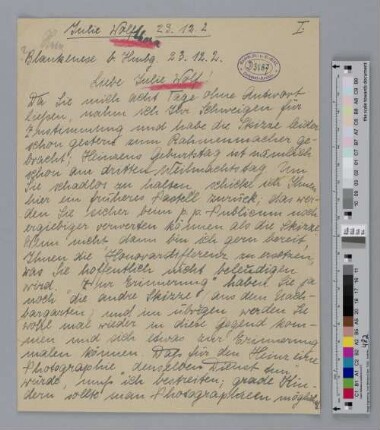 Julie Wolfthorn 23.12.2 I
Blankenese b. Hmbg. 23.12.2.
Liebe Julie Wolf!
Da Sie mich acht Tage ohne Antwort
ließen, nahm ich Ihr Schweigen für
Zustimmung und habe die Skizze leider
schon gestern zum Rahmenmacher ge-
bracht; Heinzens Geburtstag ist nämlich
schon am dritten Weihnachtstag. Um
Sie schadlos zu halten, schickt Ihnen
hier ein früheres Pastell zurück; das wer-
den Sie sicher beim p.p. Publicum noch
ergiebiger verwerten können als die Skizze.
Wenn nicht, dann bin ich gern bereit,
Ihnen die Honorardifferenz zu ersetzen,
was Sie hoffentlich nicht beleidigen
wird. "Zur Erinnerung" haben Sie ja
noch die andre Skizze aus dem Nach-
bargarten; und im übrigen werden Sie
wohl mal wieder in diese Gegend kom-
men und sich etwas zur Erinnerung
malen können. Daß für den Heinz eine
Photographie "denselben Dienst tun"
würde, muß ich bestreiten; grade Kin-
dern sollte man Photographieen möglichst